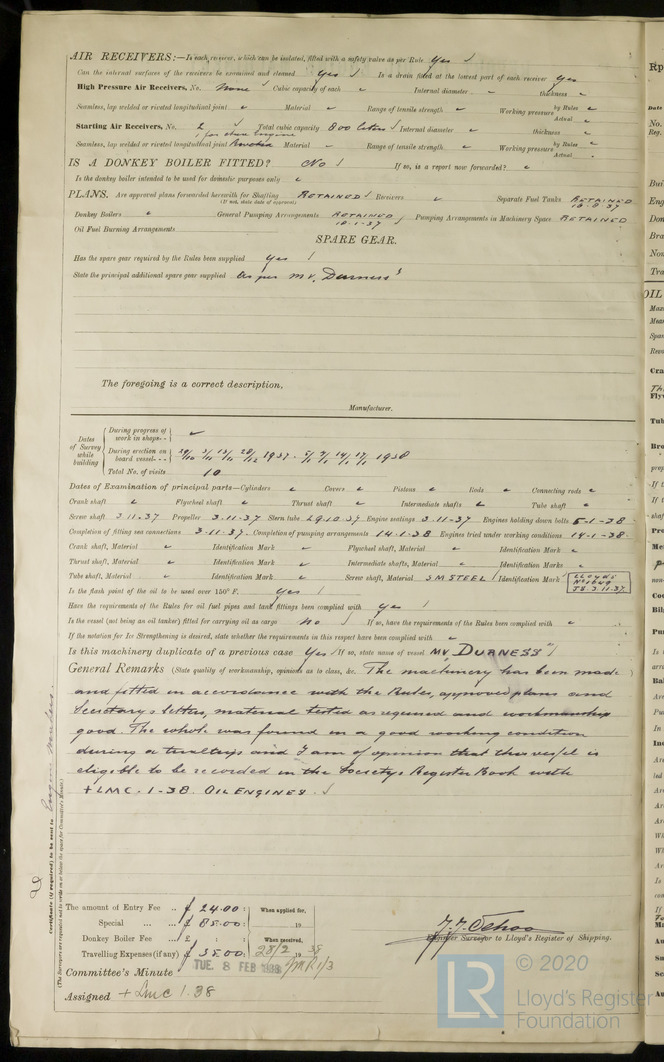 AIR RECEIVERS:—Is each receiver, which can be isolated, fitted with a safety valve as per Rule Yes ✓
Can the internal surfaces of the receivers be examined and cleaned Yes ✓ Is a drain fitted at the lowest part of each receiver Yes
High Pressure Air Receivers, No. None ✓ Cubic capacity of each Internal diameter thickness
Seamless, lap welded or riveted longitudinal joint Material Range of tensile strength Working pressure by Rules Actual
Starting Air Receivers, No. 2 Total cubic capacity 800 liters ✓ Internal diameter thickness
1 for each Engine
Seamless, lap welded or riveted longitudinal joint Riveted Material Range of tensile strength Working pressure by Rules Actual
IS A DONKEY BOILER FITTED? No ✓ If so, is a report now forwarded?
Is the donkey boiler intended to be used for domestic purposes only
PLANS. Are approved plans forwarded herewith for Shafting RETAINED ✓ Receivers Separate Fuel Tanks RETAINED
(If not, state date of approval)
Donkey Boilers General Pumping Arrangements RETAINED ✓ Pumping Arrangements in Machinery Space RETAINED
Oil Fuel Burning Arrangements
SPARE GEAR.
Has the spare gear required by the Rules been supplied yes ✓
State the principal additional spare gear supplied As per M.V. "Durness"
The foregoing is a correct description,
Manufacturer.
Dates of Survey while building
During progress of work in shops - -
During erection on board vessel - - - 1937. 1938
Total No. of visits 10
Dates of Examination of principal parts—Cylinders Covers Pistons Rods Connecting rods
Crank shaft Flywheel shaft Thrust shaft Intermediate shafts Tube shaft
Screw shaft 3.11.37 Propeller 3.11.37 Stern tube 29.10.37 Engine seatings 3.11.37 Engines holding down bolts 5-1-38
Completion of fitting sea connections 3.11.37 Completion of pumping arrangements 14.1.38 Engines tried under working conditions 14-1-38
Crank shaft, Material Identification Mark Flywheel shaft, Material Identification Mark
Thrust shaft, Material Identification Mark Intermediate shafts, Material Identification Marks
Tube shaft, Material Identification Mark Screw shaft, Material S M STEEL Identification Mark LLOYDS
JS 3.11.37
Is the flash point of the oil to be used over 150° F. Yes ✓
Have the requirements of the Rules for oil fuel pipes and tank fittings been complied with yes ✓
Is the vessel (not being an oil tanker) fitted for carrying oil as cargo No ✓ If so, have the requirements of the Rules been complied with
If the notation for Ice Strengthening is desired, state whether the requirements in this respect have been complied with
Is this machinery duplicate of a previous case Yes If so, state name of vessel MV "DURNESS"
General Remarks (State quality of workmanship, opinions as to class, &c. The machinery has been made
and fitted in accordance with the Rules, approved plans and
Secretary's letters, material tested as required and workmanship
good. The whole was found in a good working condition
during a trial trip and I am of opinion that this vessel is
eligible to be recorded in the Society's Register Book with
+LMC. 1-38. OIL ENGINES.
The amount of Entry Fee .. £ 24.00 : When applied for,
Special ... ... £ 85.00 : 19
Donkey Boiler Fee ... £ : : When received,
Travelling Expenses (if any) £ 35.00 : 28/2 1938
Engineer Surveyor to Lloyd's Register of Shipping.
Committee's Minute TUE. 8 FEB 1938
Assigned + LMC 1.38
Certificate (if required) to be sent to
(The Surveyors are requested not to write on or below the space for Committee's Minute.)
© 2020
LR
Lloyd's Register
Foundation